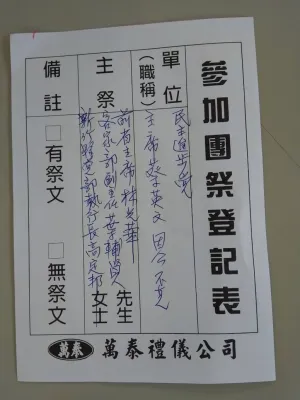 參加團祭登記表
單位
(職稱)
民主進步黨
主席 蔡英文 因公不克
主祭
前省主席 林光華
客家部副主任 葉輔
先生
女士
新竹縣黨部執行長 高定邦
備註
□有祭文 □無祭文
萬泰 萬泰禮儀公司